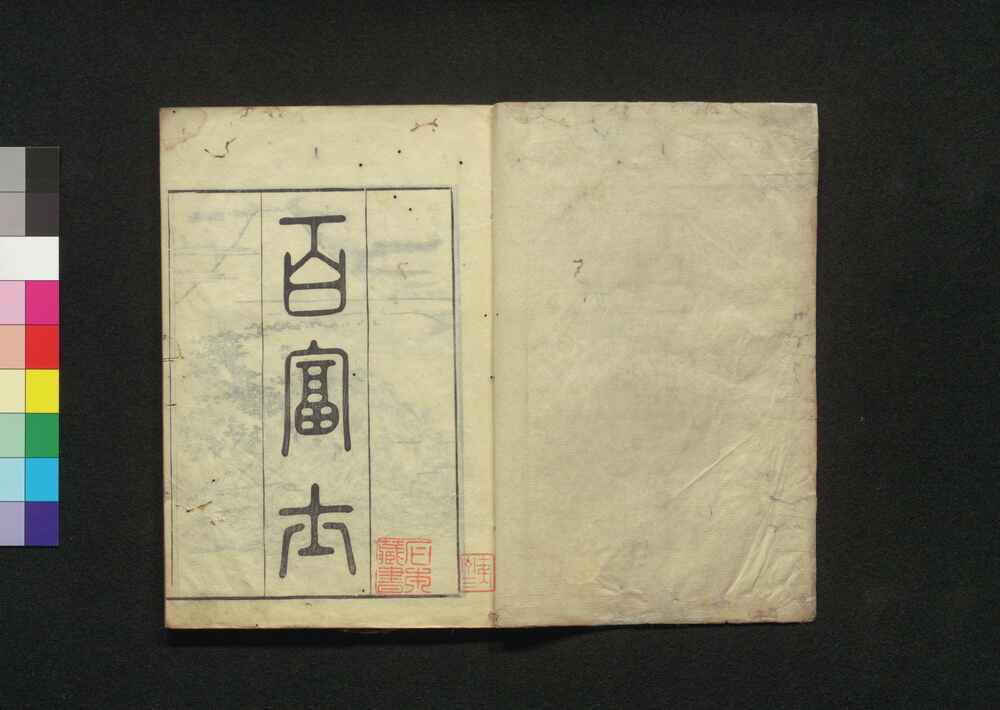 百富士
藏書